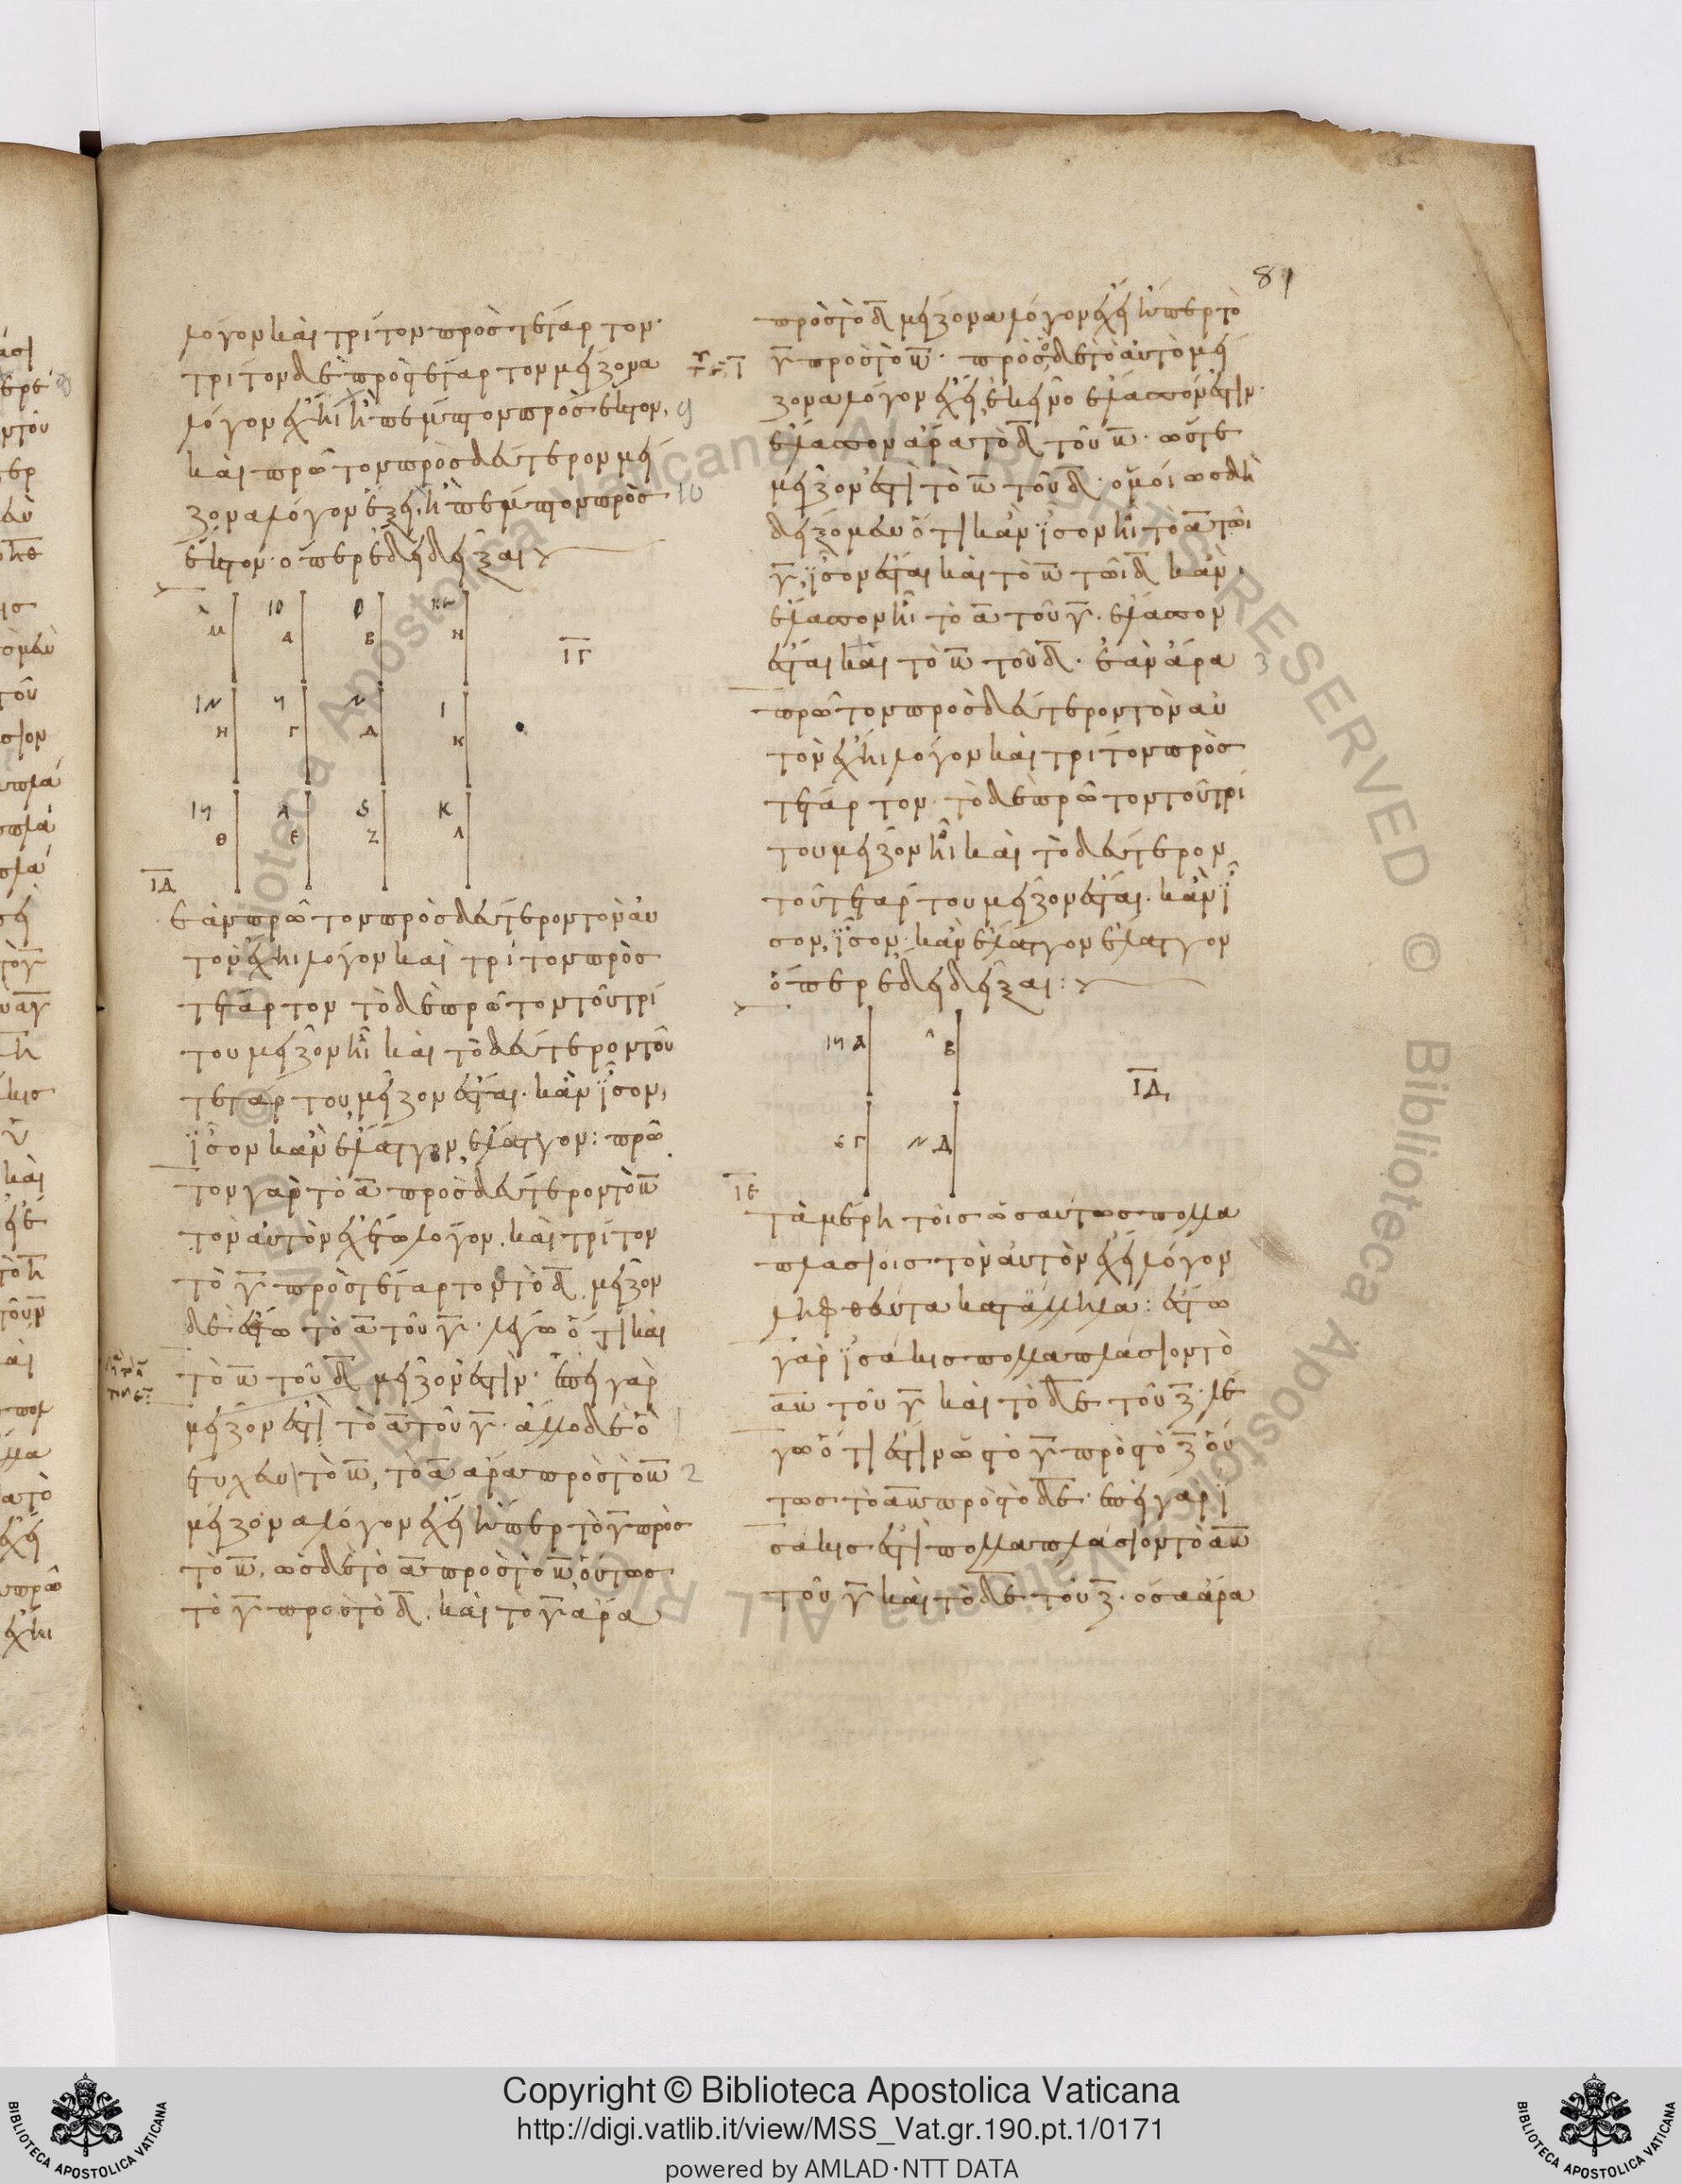 81
λόγον καὶ τρίτον πρὸς τέταρτον·
τρίτον δὲ πρὸς τέταρτον μείζονα
λόγον ἔχηι ἢ πέμπτον πρὸς ἕκτον,
καὶ πρῶτον πρὸς δεύτερον μεί
ζονα λόγον ἕξει, ἢ πέμπτον πρὸς
ἕκτον· ὅπερ ἔδει δεῖξαι
Μ Α Β Η
ΙΓ
Η Γ Δ Κ
Θ Ε Ζ Λ
ΙΔ
ἐὰν πρῶτον πρὸς δεύτερον τὸν αὐ
τὸν ἔχηι λόγον καὶ τρίτον πρὸς
τέταρτον τὸ δὲ πρῶτον τοῦ τρί
του μεῖζον ἦι καὶ τὸ δεύτερον τοῦ
τετάρτου μεῖζον ἔσται· κἂν ἴσον,
ἴσον κἂν ἔλαττον, ἔλαττον: πρῶ
τον γὰρ τὸ α πρὸς δεύτερον τὸ β
τὸν αὐτὸν ἐχέτω λόγον. καὶ τρίτον
τὸ γ πρὸς τέταρτον τὸ δ. μεῖζον
δὲ ἔστω τὸ α τοῦ γ· λέγω ὅτι καὶ
τὸ β τοῦ δ μεῖζόν ἐστιν· ἐπεὶ γὰρ
μεῖζόν ἐστι τὸ α τοῦ γ· ἄλλο δὲ ὃ
ἔτυχεν τὸ β, τὸ α ἄρα πρὸς τὸ β
μείζονα λόγον ἔχει ἤπερ τὸ γ πρὸς
τὸ β, ὡς δὲ τὸ α πρὸς τὸ β οὕτως
τὸ γ πρὸς τὸ δ. καὶ τὸ γ ἄρα
πρὸς τὸ δ μείζονα λόγον ἔχει ἤπερ τὸ
γ πρὸς τὸ β· πρὸς ὃ δὲ τὸ αὐτὸ μεί
ζονα λόγον ἔχει, ἐκεῖνο ἔλασσόν ἐστιν·
ἔλασσον ἄρα τὸ δ τοῦ β· ὥστε
μεῖζόν ἐστι τὸ β τοῦ δ· ὁμοίως δὴ
δείξομεν ὅτι κἂν ἴσον ἦι τὸ α τῶι
γ, ἴσον ἔσται καὶ τὸ β τῶι δ κἂν
ἔλασσον ἦι τὸ α τοῦ γ· ἔλασσον
ἔσται καὶ τὸ β τοῦ δ· ἐὰν ἄρα
πρῶτον πρὸς δεύτερον τὸν αὐ
τὸν ἔχηι λόγον καὶ τρίτον πρὸς
τέταρτον· τὸ δὲ πρῶτον τοῦ τρί
του μεῖζον ἦι καὶ τὸ δεύτερον
τοῦ τετάρτου μεῖζον ἔσται· κἂν ἴ
σον, ἴσον· κἂν ἔλαττον ἔλαττον
ὅπερ ἔδει δεῖξαι:
Α Β
ΙΔ
Γ Δ
ΙΕ
τὰ μέρη τοῖς ὡσαύτως πολλα
πλασίοις τὸν αὐτὸν ἔχει λόγον
ληφθέντα κατάλληλα: ἔστω
γὰρ ἰσάκις πολλαπλάσιον τὸ
αβ τοῦ γ καὶ τὸ δε τοῦ ζ· λέ
γω ὅτι ἐστὶν ὡς τὸ γ πρὸς τὸ ζ οὕ
τως τὸ αβ πρὸς τὸ δε· ἐπεὶ γὰρ ἰ
σάκις ἐστὶ πολλαπλάσιον τὸ αβ
τοῦ γ καὶ τὸ δε τοῦ ζ· ὅσα ἄρα
Copyright © Biblioteca Apostolica Vaticana
http://digi.vatlib.it/view/MSS_Vat.gr.190.pt.1/0171
powered by AMLAD·NTT DATA